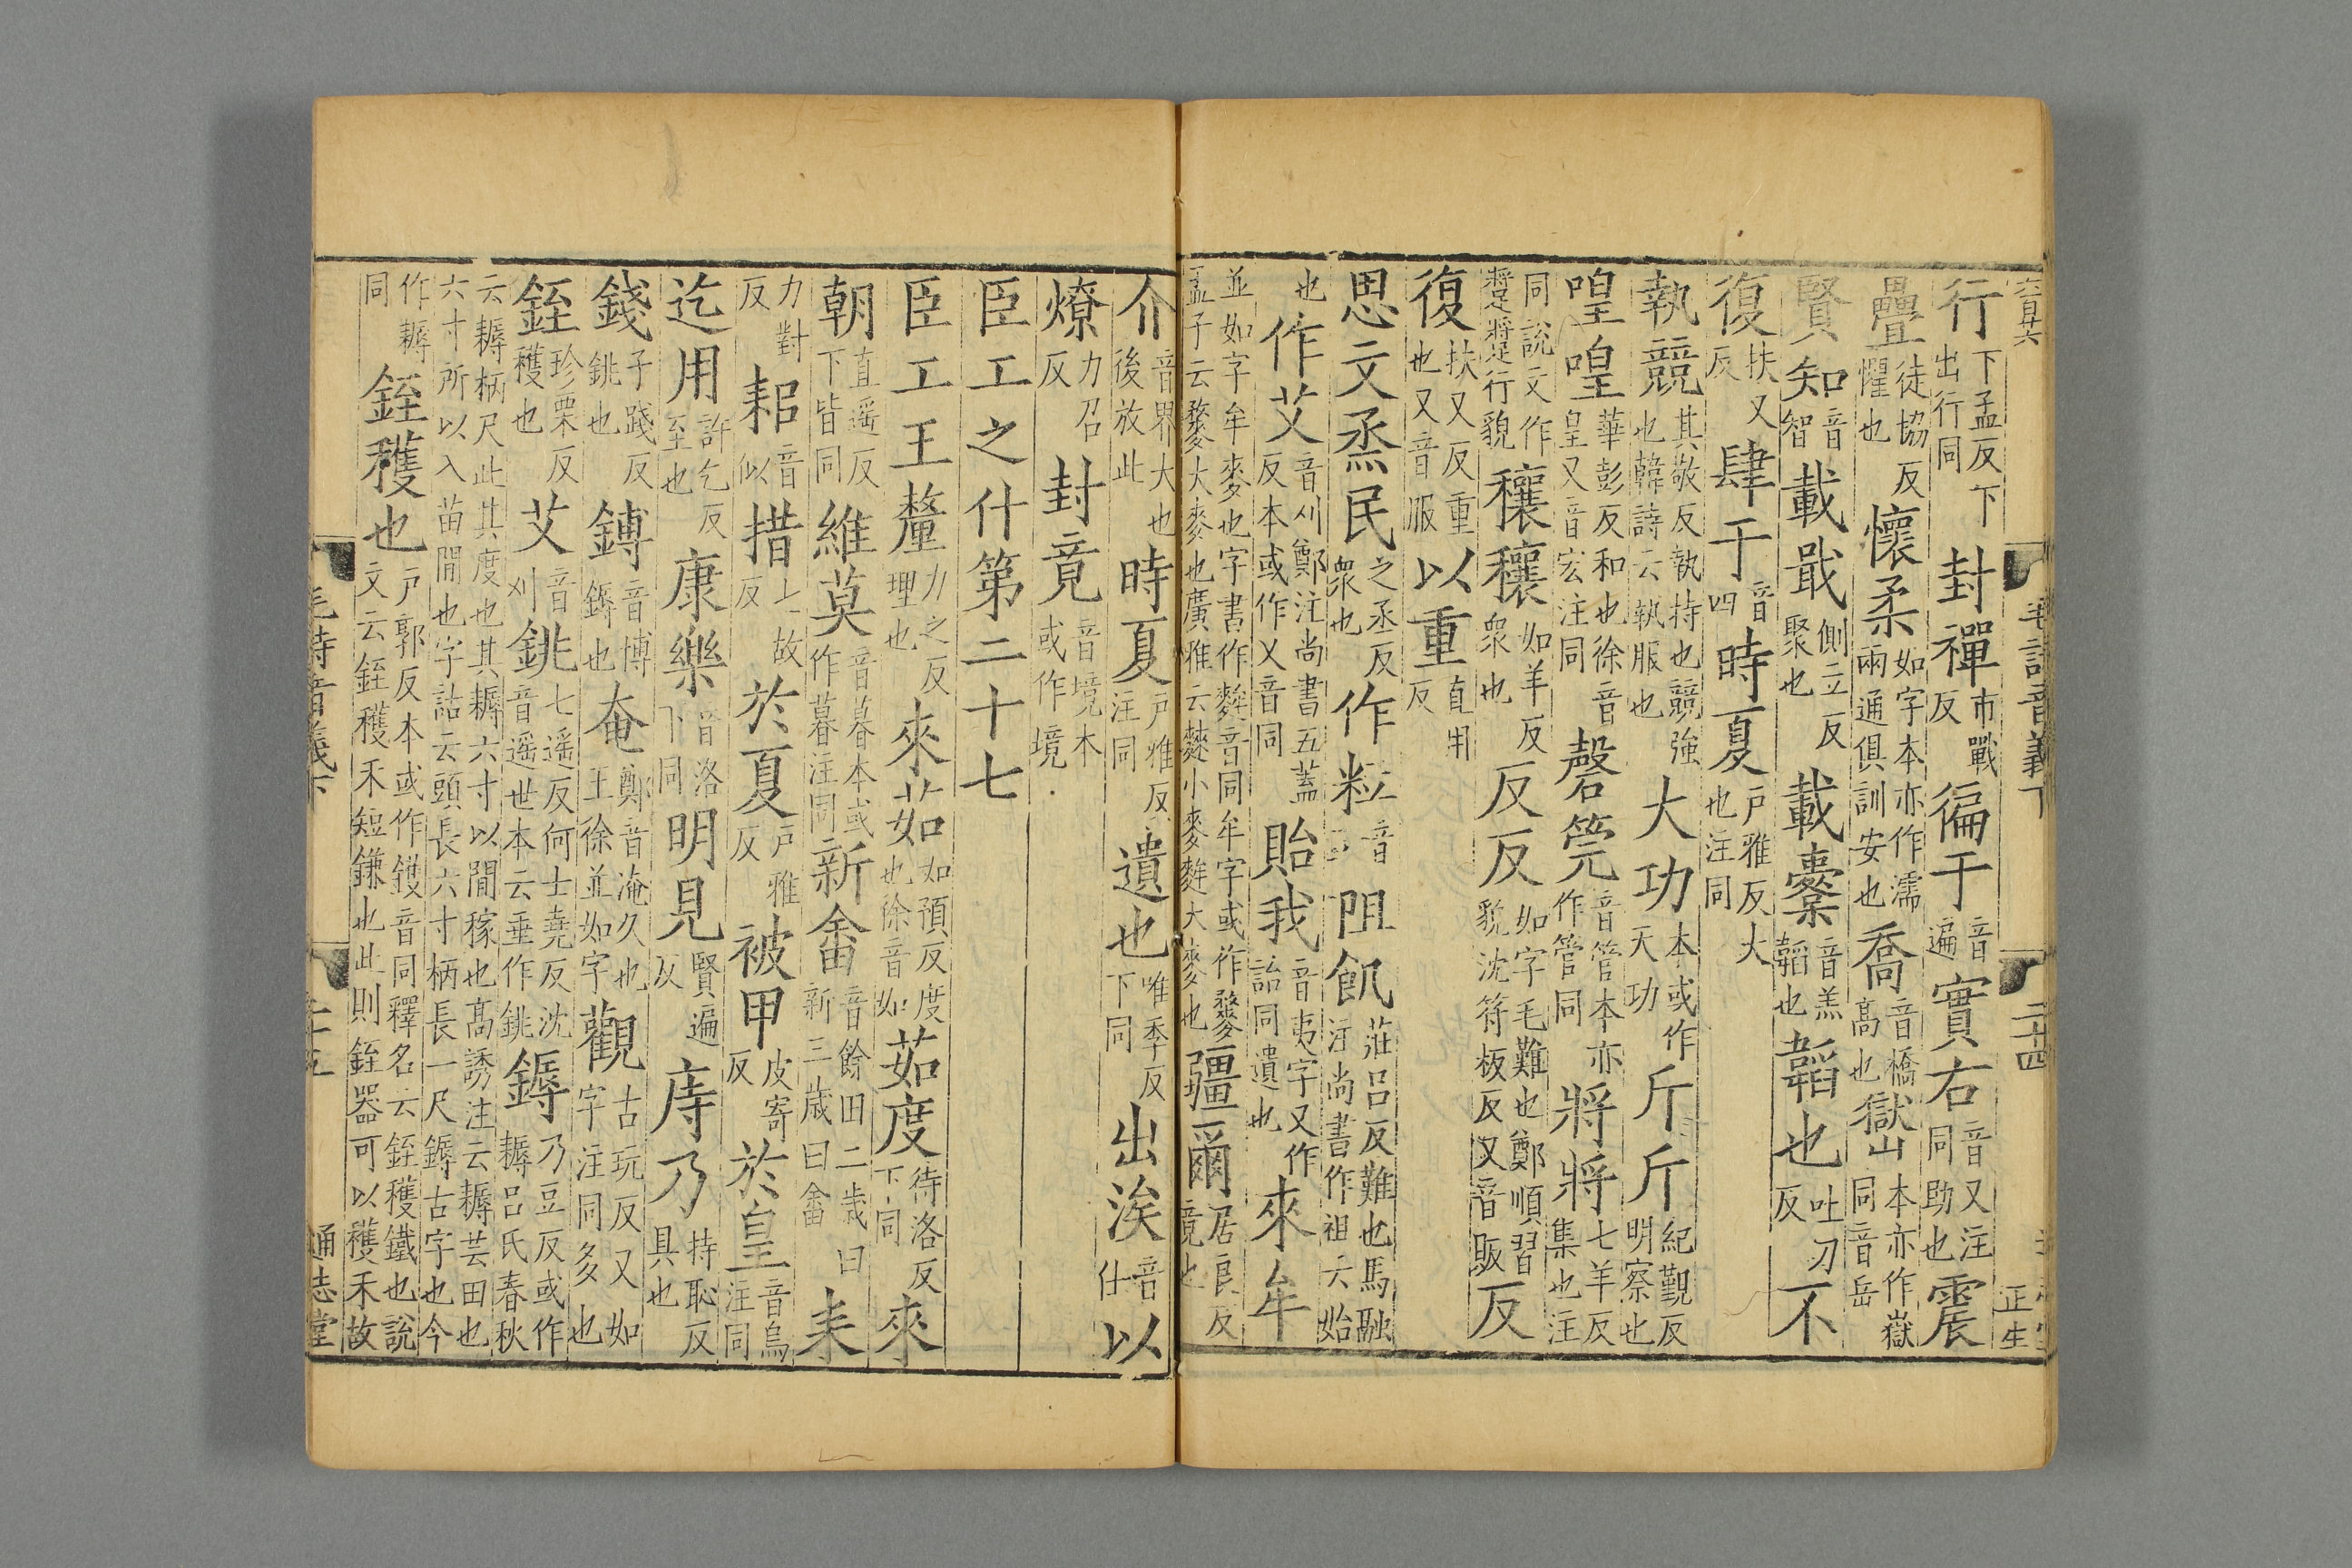 行下孟反下出行同封禪市戰反徧于音遍實右音又注同助也震
疊徒協反懼也懷柔如字本亦作濡兩通俱訓安也喬音橋高也嶽山本亦作嶽同音岳
賢知音智載戢側立反聚也載櫜音羔韜也韜也吐刃反不
復扶又反肆于音四時夏戶雅反大也注同
執競其敬反執持也競強也韓詩云執服也大功本或作天功斤斤紀覲反明察也
喤喤華彭反和也徐音皇又音宏注同磬筦音管本亦作管同將將七羊反集也注
同說文作𨄚𨄚行貌穰穰如羊反衆也反反如字毛難也鄭順習貌沈符板反又音販反
復扶又反重也又音服以重直用反
思文烝民之丞反衆也作粒音立阻飢莊呂反難也馬融注尚書作祖云始
也作艾音刈鄭注尚書五蓋反本或作乂音同貽我音夷字又作詒同遺也來牟
並如字牟麥也字書作麰音同牟字或作𪍓孟子云𪍓大麥也廣雅云麳小麥麰大麥也疆爾居良反竟也
介音界大也後放此時夏戶雅反注同遺也唯季反下同出涘音仕以
燎力召反封竟音境本或作境
臣工之什第二十七
臣工王釐力之反理也來茹如預反度也徐音如茹度待洛反下同來
朝直遥反下皆同維莫音暮本或作暮注同新畬音餘田二歲曰新三歲曰畬耒
力對反耜音似措七故反於夏戶雅反被甲皮寄反於皇音烏注同
迄用許乞反至也康樂音洛下同明見賢遍反庤乃持恥反具也
錢子踐反銚也鎛音博鎒也奄鄭音淹久也王徐並如字觀古玩反又如字注同多也
銍珍栗反穫也艾音刈銚七遥反何士堯反沈音遥世本云垂作銚鎒乃豆反或作耨呂氏春秋
云耨柄尺此其度也其耨六寸以間稼也高誘注云耨芸田也六寸所以入苗間也字詁云頭長六寸柄長一尺鎒古字也今
作耨同銍穫也戶郭反本或作鑊音同釋名云銍穫鐵也說文云銍穫禾短鎌也此則銍器可以穫禾故
毛詩音義下
二十五
通志堂